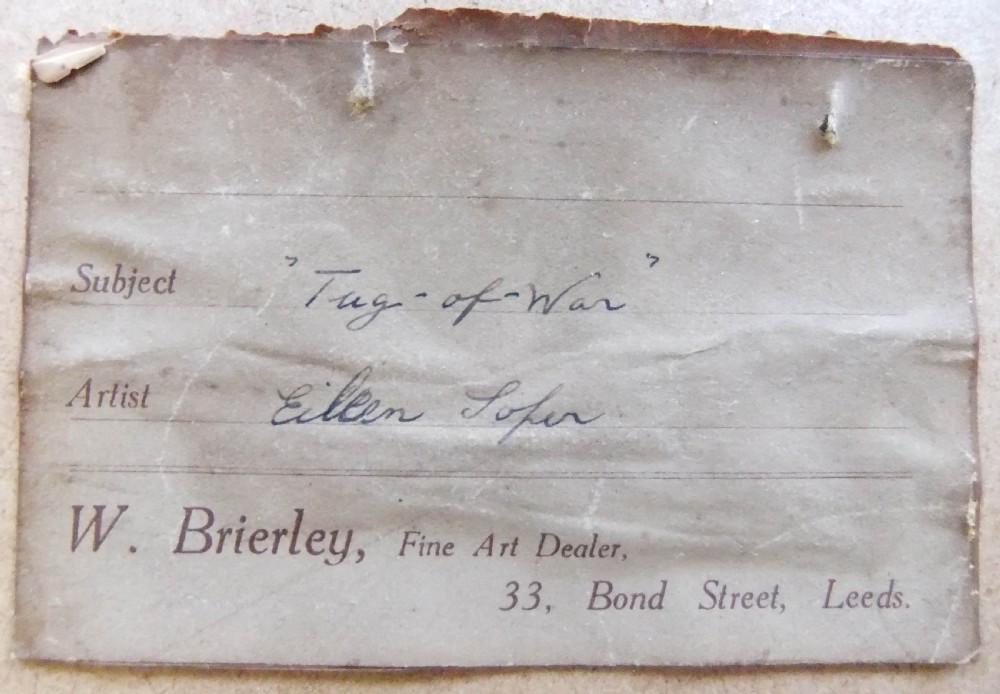 Subject "Tug-of-War"
Artist Eileen Soper
W. Brierley, Fine Art Dealer,
33, Bond Street, Leeds.